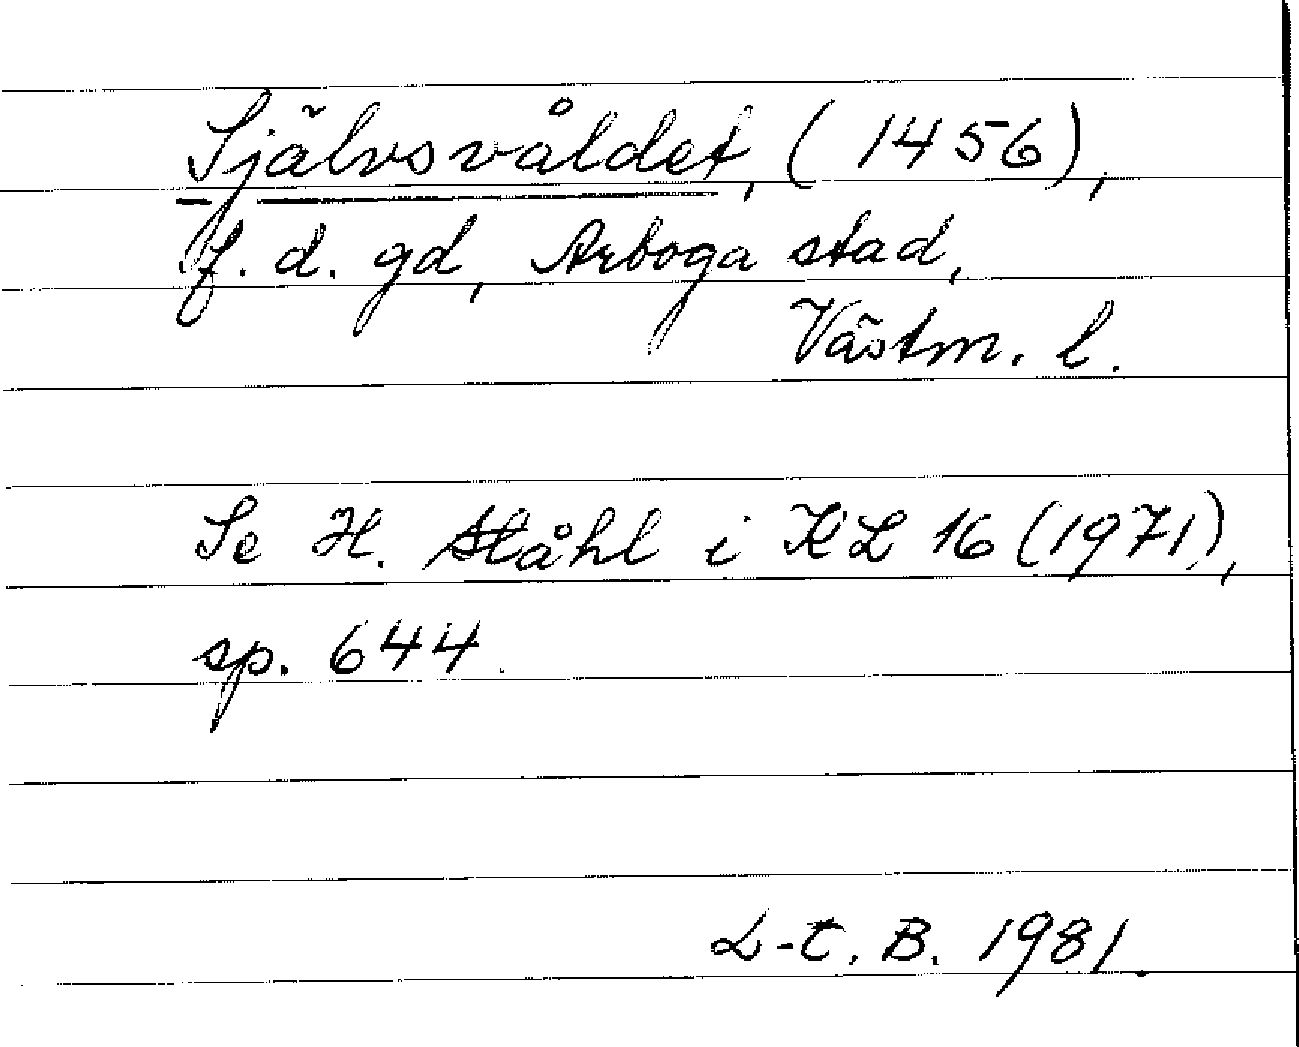 Självsvåldet, (1456),
f. d. gd, Arboga stad,
Västm. l.
Se H. Ståhl i KL 16 (1971),
sp. 644.
L-E. B. 1981.